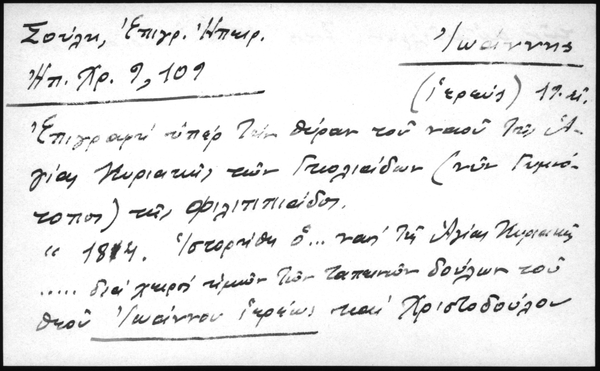 Σούλη, Ἐπιγρ. Ἠπειρ.
Ἰωάννης
Ἠπ. Χρ. 9, 109
(ἱερεύς) 19. αἰ.
Ἐπιγραφή ὑπέρ τήν θύραν τοῦ ναοῦ τῆς Ἁ-
γίας Κυριακῆς τῶν Γκολιαίδων (νῦν Γυμνό-
τοπος) τῆς Φιλιππιάδος.
" 18 4. Ἱστορήθη ὁ... ναός τῆς Ἁγίας Κυριακῆς
..... διά χειρός ἡμῶν τῶν ταπεινῶν δούλων τοῦ
θεοῦ Ἰωάννου ἱερέως καί Χριστοδούλου